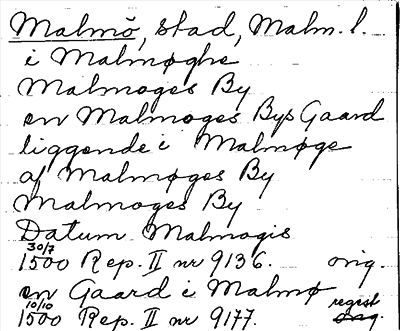 Malmö, stad, Malm. l.
i Malmøghe
Malmoges By
en Malmoges Bys Gaard
liggende i Malmøge
af Malmøges By
Malmoges By
Datum Malmogis
30/7
1500 Rep. II nr 9136. orig.
en Gaard i Malmø
10/10 regist
1500 Rep. II nr 9177. orig.